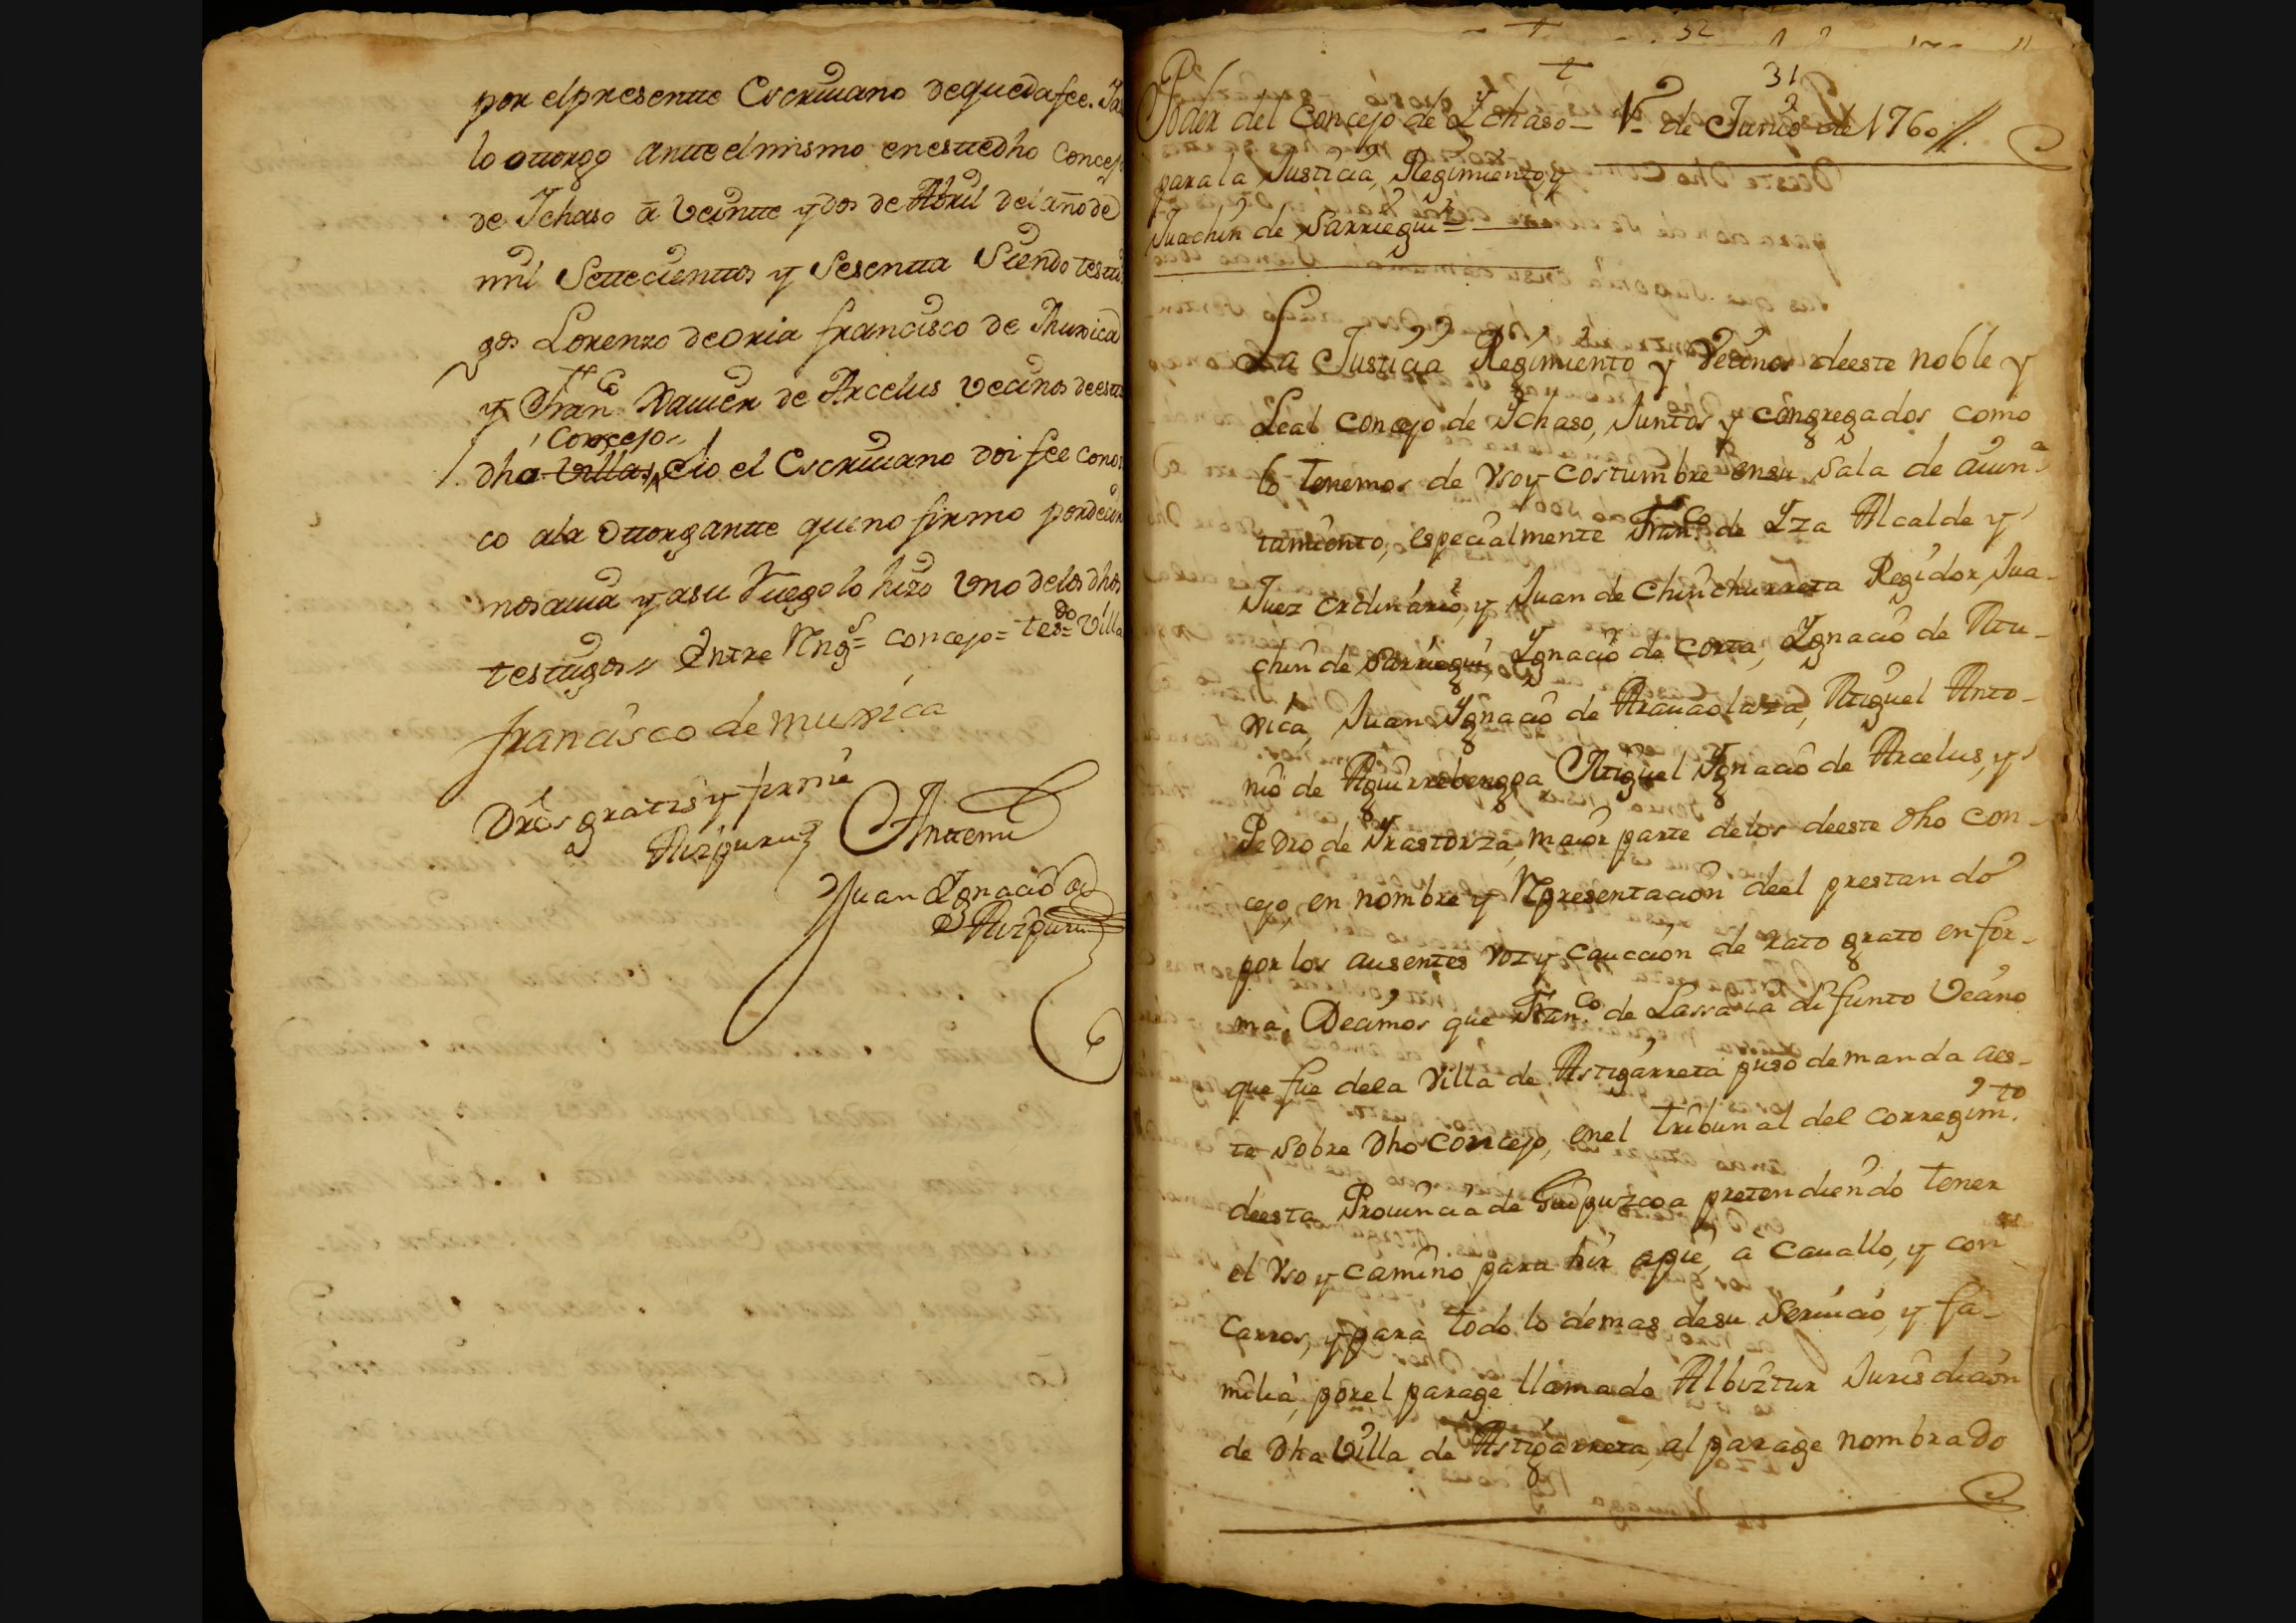 por el presentte Escriuano de que da fee. Y asi
lo ottorgo antte el mismo en estte dho Concejo
de Ychaso a veintte y dos de Abril del año de
mil Settecienttos y Sesentta Siendo testi
gos Lorenzo de oria francisco de Muxica
y Fran.co Xauier de Arcelus vecinos de esta
Concejo
dha villa, e io el Escriuano doi fee conos
co a la Ottorgantte que no firmo por decir
no sauia y a su Ruego lo hizo Uno de los dhos
testigos // Entre Rng.s = concejo = tes.do = villa
francisco de muxica
Dros gratis y firmé
Aizpuru
Antemi
Juan Ygnacio de
Aizpuru
32
31
Poder del Concejo de Ychaso
para la Justicia, Regimiento, y
Juachin de Sarriegui
de Junio de 1760 //.
La Justicia Regimiento y Vecinos deeste noble y
Leal concejo de Ychaso, Juntos y congregados como
lo tenemos de vso y costumbre en su Sala de aiun
tamiento, especialmente Fran.co de Yza Alcalde y
Juez ordinario, y Juan de Chinchurreta Regidor, Jua-
chin de Sarriegui, Ygnacio de Corta, Ygnacio de Mu-
xica, Juan Ygnacio de Arauaolaza, Miguel Anto-
nio de Aguirrebengoa Miguel Ygnacio de Arcelus, y
Pedro de Yrastorza, maior parte de los deeste dho con-
cejo, en nombre y Rpresentacion deel prestando
por los ausentes voz y caucion de rato grato en for-
ma, Decimos que Fran.co de Lasa ia difunto Vecino
que fue de la Villa de Astigarreta puso demanda aes-
te sobre Dho Concejo, en el tribunal del corregim.to
deesta Prouincia de Guipuzcoa pretendiendo tener
el vso y camino para hir apie, a cauallo, y con
Carros, y para todo lo demas desu Seruicio, y fa-
milia, por el parage llamado Albiztur Jurisdicion
de Dha Villa de Astigarreta, al parage nombrado